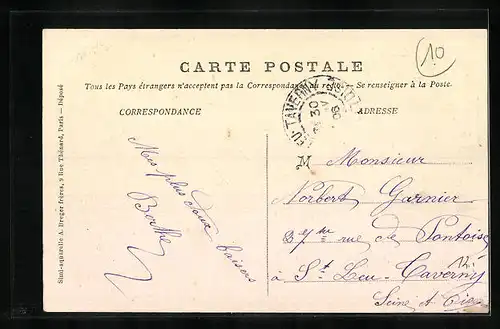 10
CARTE POSTALE
Tous les Pays étrangers n'acceptent pas la Correspondance au recto. Se renseigner à la Poste.
CORRESPONDANCE
ADRESSE
Mes plus doux baisers
Berthe
M Monsieur
Norbert Garnier
rue de Pontoise
à St Leu-Taverny
Seine et Oise
12.
Simi-aquarelle A. Breger frères, 9 Rue Thénard, Paris — Déposé